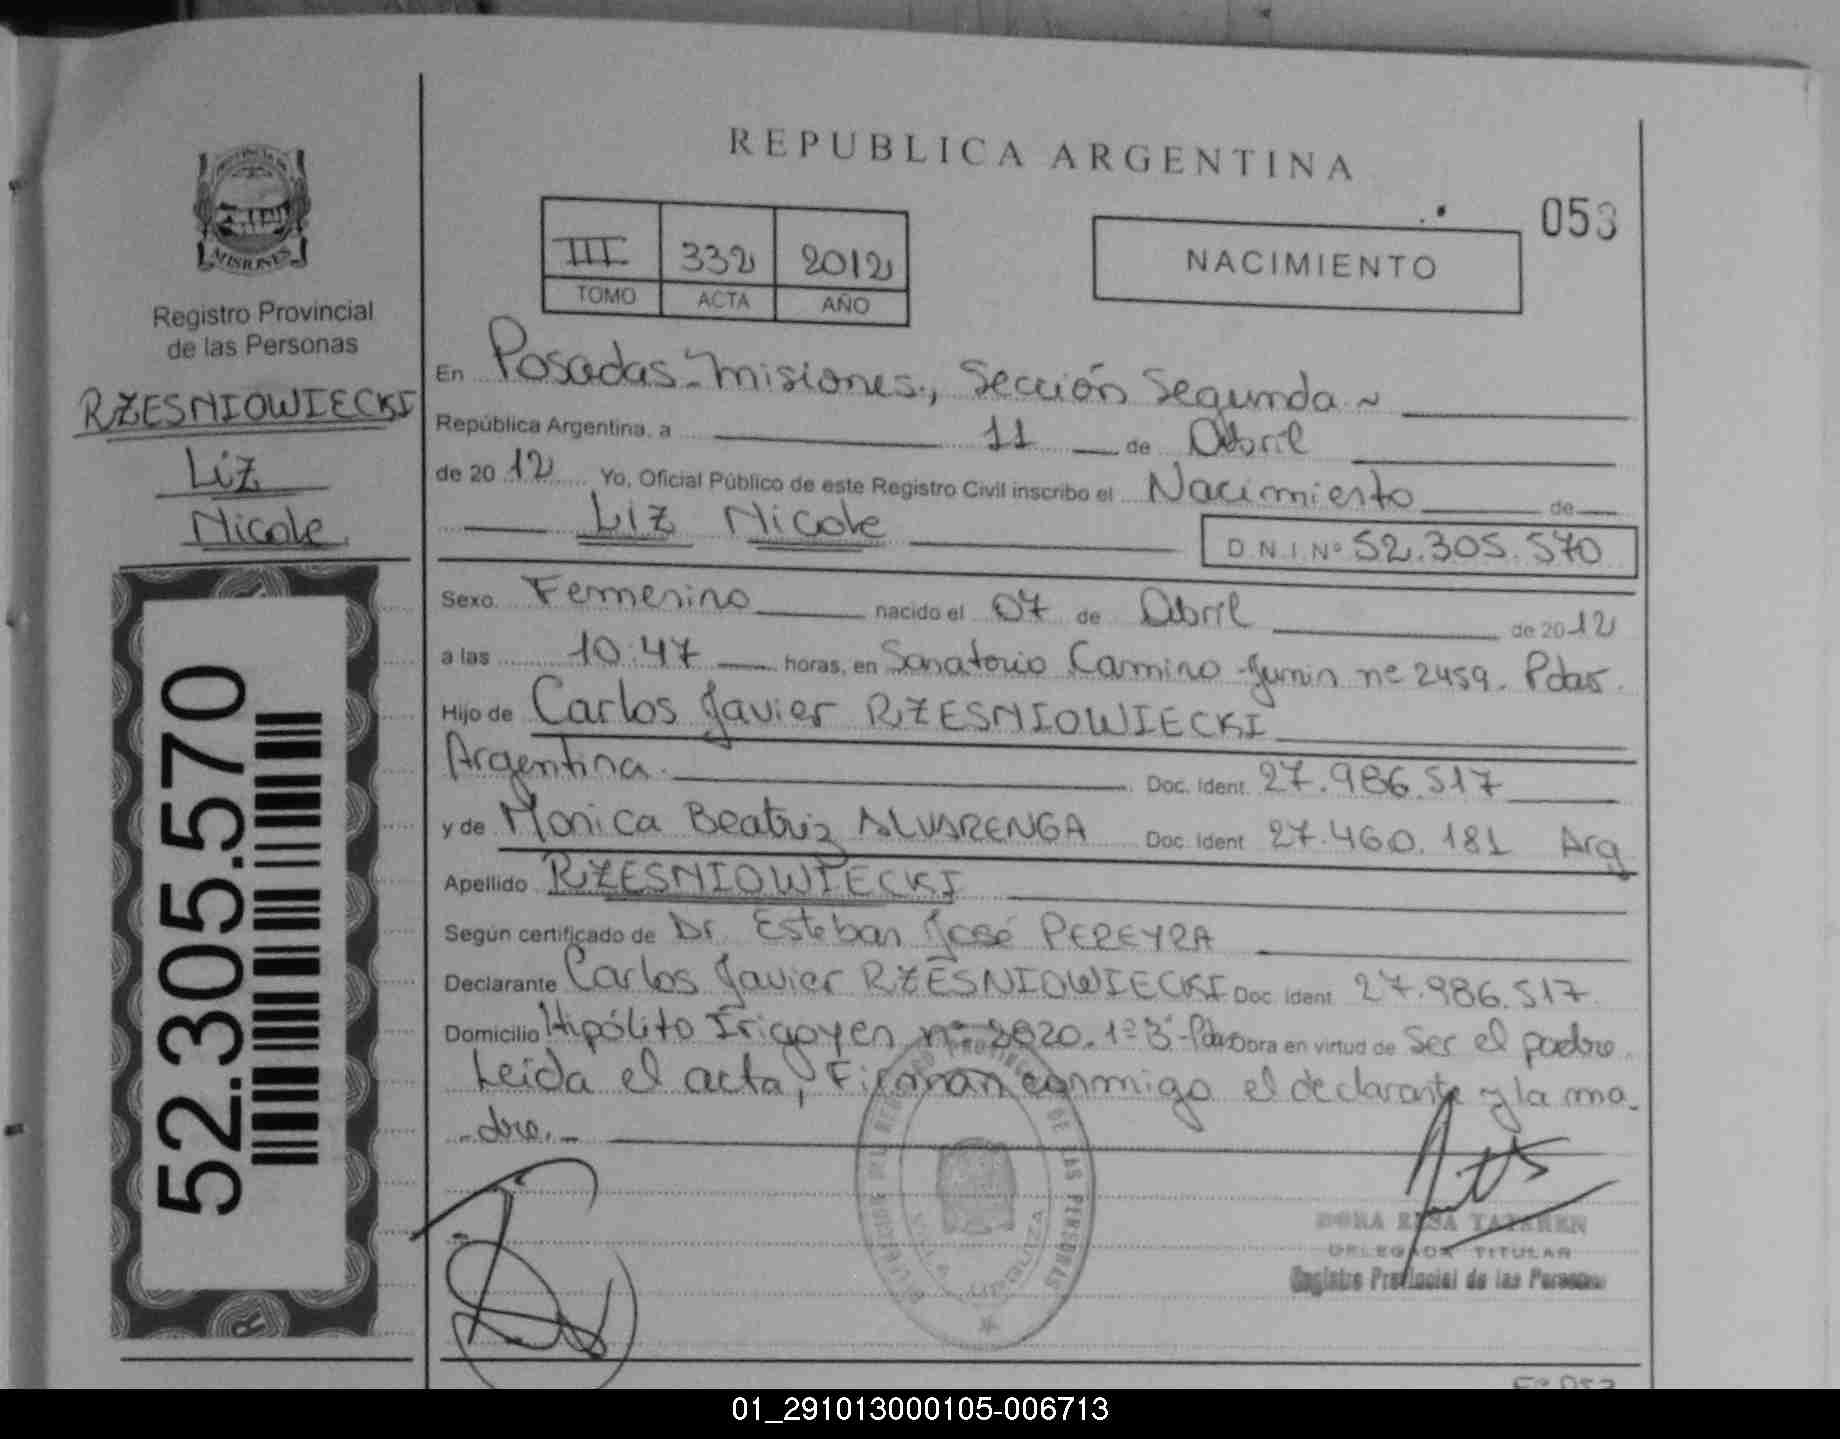 REPUBLICA ARGENTINA
053
PROVINCIA DE
MISIONES
Registro Provincial
de las Personas
RZESNIOWIECKI
Liz
Nicole
52.305.570
III 332 2012
TOMO ACTA AÑO
NACIMIENTO
En Posadas-Misiones, Sección Segunda ~
República Argentina, a 11 de Abril
de 2012 Yo, Oficial Público de este Registro Civil inscribo el Nacimiento de
Liz Nicole
D.N.I.Nº 52.305.570
Sexo Femenino nacido el 07 de Abril de 2012
a las 10:47 horas, en Sanatorio Camino-Junin nº 2459. Pdas.
Hijo de Carlos Javier RZESNIOWIECKI
Argentina. Doc. Ident. 27.986.517
y de Monica Beatriz ALVARENGA Doc. Ident 27.460.181 Arg
Apellido RZESNIOWIECKI
Según certificado de Dr. Esteban José PEREYRA
Declarante Carlos Javier RZESNIOWIECKI Doc. Ident 27.986.517
Domicilio Hipólito Irigoyen nº 2020. 1º 3ª-Pdas Obra en virtud de Ser el padre.
Leida el acta, Firman conmigo el declarante y la ma-
dre.-
DE LAS PERSONAS
DELEGADA TITULAR
Registro Provincial de las Personas
01_291013000105-006713